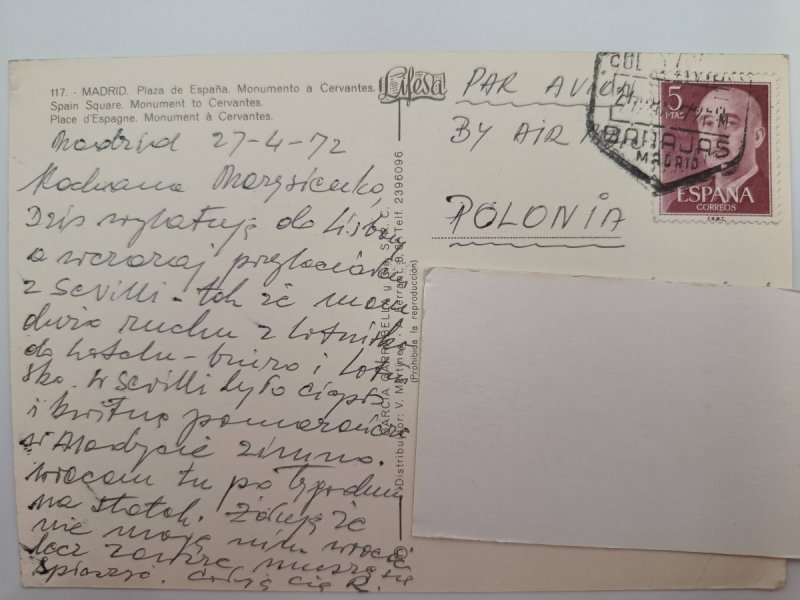 117. - MADRID. Plaza de España. Monumento a Cervantes.
Spain Square. Monument to Cervantes.
Place d'Espagne. Monument à Cervantes.
Lifesa
Madrid 27-4-72
Kochana Marysieńko,
Dziś wylatuję do Lisbony
a wczoraj przyleciałem
z Sevilli - tak że mam
dużo ruchu z lotniska
do hotelu - biuro i lotni
sko. W Sevilli było ciepło
i kwitną pomarańcze
w Madrycie zimno.
wracam tu po tygodniu
na statek. Żałuję że
nie mogę nim wracać
lecz zawsze muszę się
spieszyć. Całuję Cię R.
GARCIA GARRABELLA y Cía. S. R. C.
Distribuidor: V. Martínez - A. Ferrant, 8. Telf. 2396096
(Prohibida la reproducción)
PAR AVION
BY AIR MAIL
POLONIA
BARAJAS
MADRID
5
PTAS
ESPAÑA
CORREOS